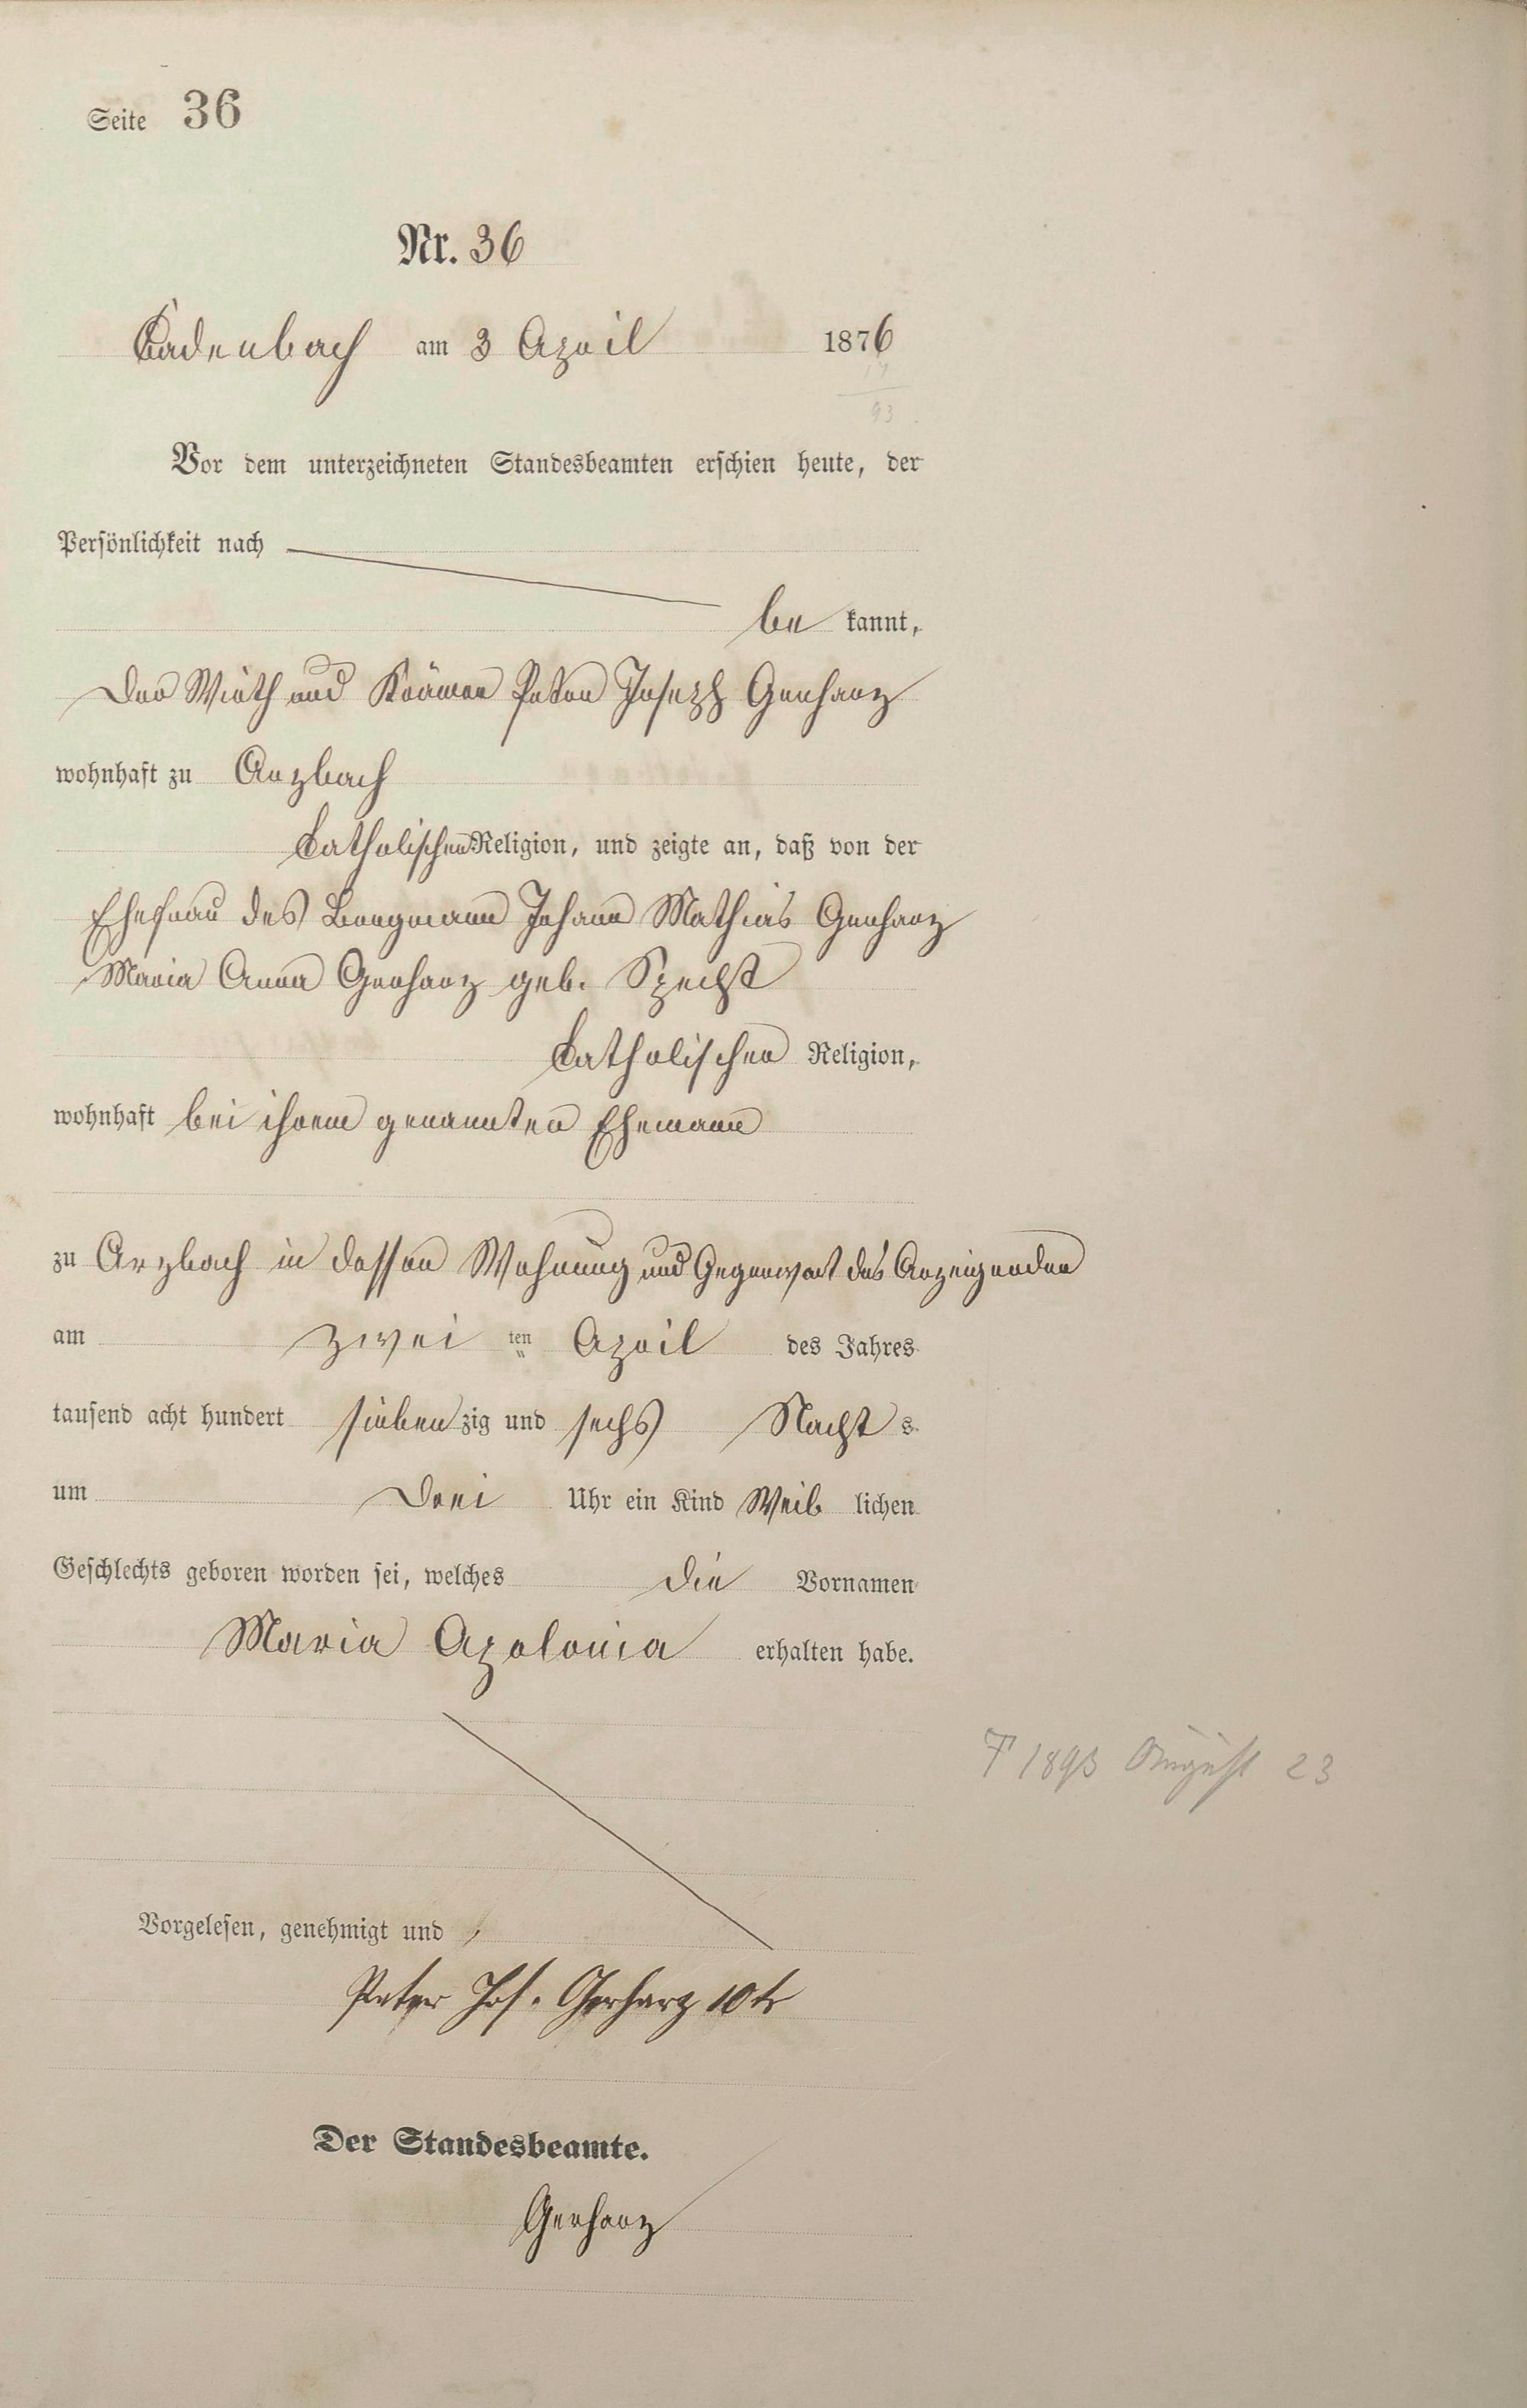 Seite 36
Nr. 36
Cadenbach am 3 April 1876
17
93
Vor dem unterzeichneten Standesbeamten erschien heute, der
Persönlichkeit nach
be kannt,
Der Wirth und Krämer Peter Joseph Gerharz
wohnhaft zu Arzbach
Catholischer Religion, und zeigte an, daß von der
Ehefrau des Bergmann Johann Mathias Gerharz
Maria Anna Gerharz geb. Specht
Catholischer Religion,
wohnhaft bei ihrem genannten Ehemann
zu Arzbach in dessen Wohnung und Gegenwart des Anzeigenden
am zwei ten April des Jahres
tausend acht hundert sieben zig und sechs Nacht s
um Drei Uhr ein Kind Weib lichen
Geschlechts geboren worden sei, welches die Vornamen
Maria Apolonia erhalten habe.
† 1893 August 23
Vorgelesen, genehmigt und
Peter Jos. Gerharz 10tr
Der Standesbeamte.
Gerharz